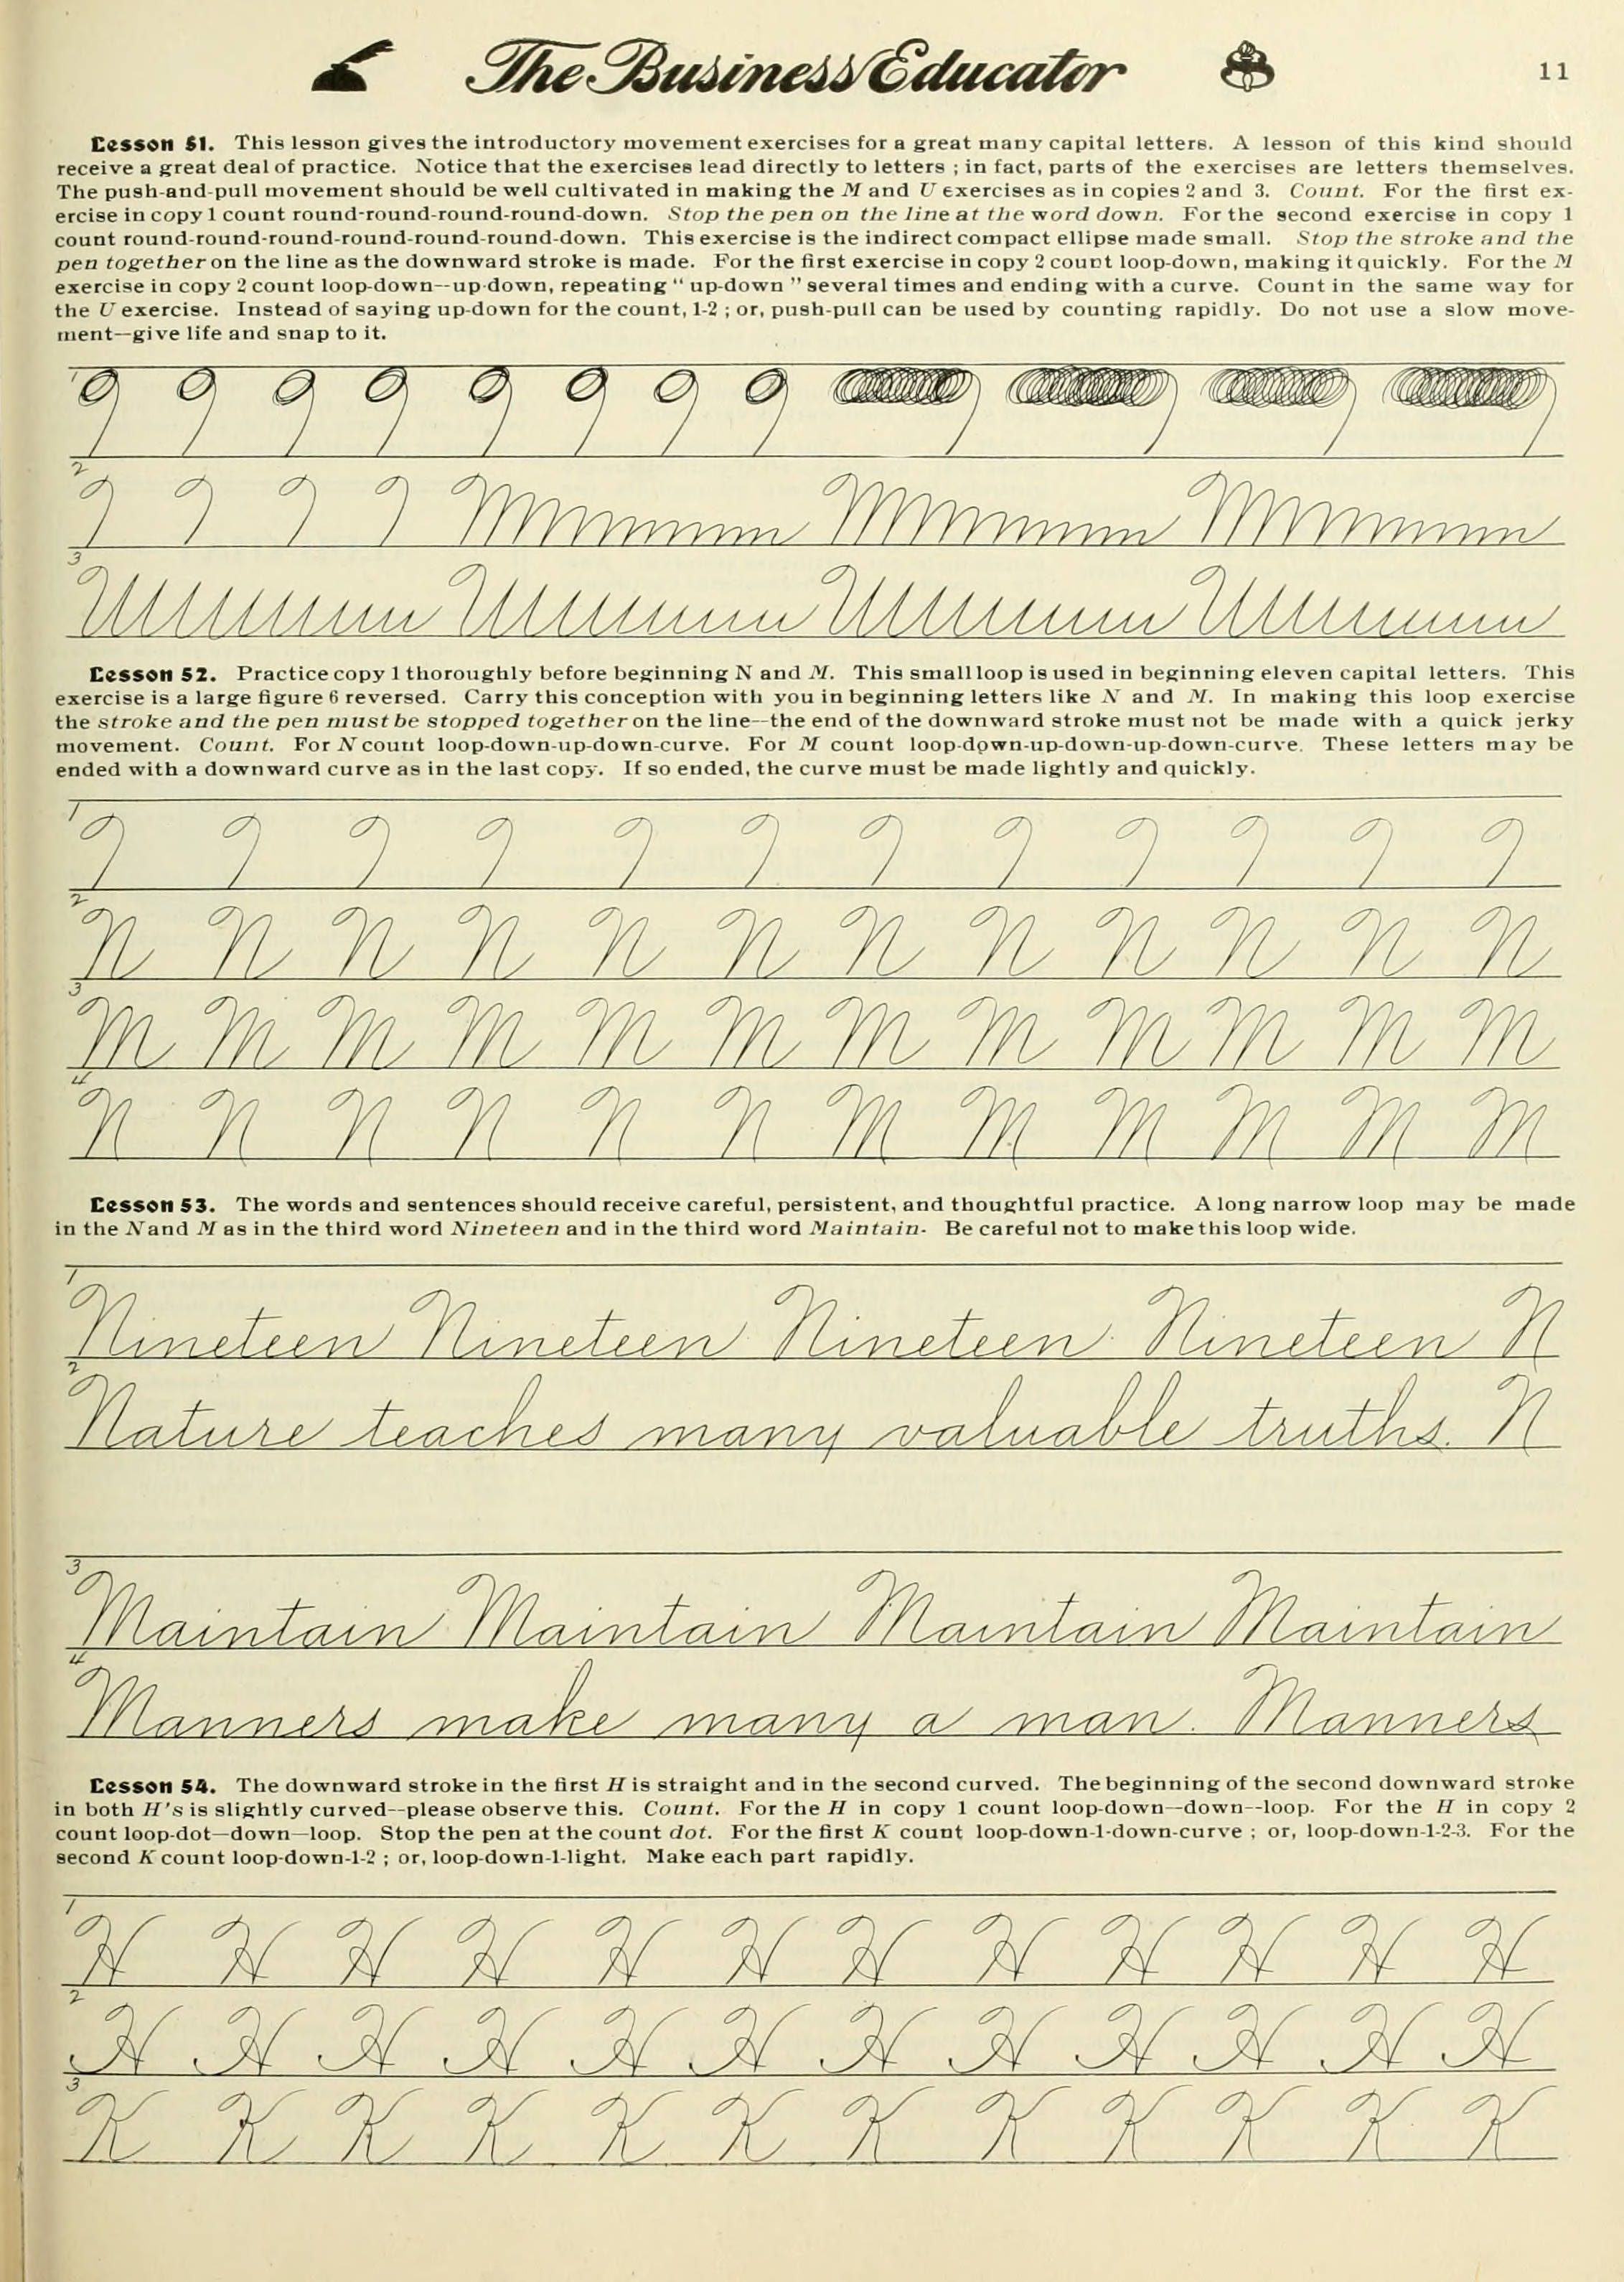 The Business Educator 11
Lesson 51. This lesson gives the introductory movement exercises for a great many capital letters. A lesson of this kind should
receive a great deal of practice. Notice that the exercises lead directly to letters ; in fact, parts of the exercises are letters themselves.
The push-and-pull movement should be well cultivated in making the M and U exercises as in copies 2 and 3. Count. For the first ex-
ercise in copy 1 count round-round-round-round-round-down. Stop the pen on the line at the word down. For the second exercise in copy 1
count round-round-round-round-round-round-down. This exercise is the indirect compact ellipse made small. Stop the stroke and the
pen together on the line as the downward stroke is made. For the first exercise in copy 2 count loop-down, making it quickly. For the M
exercise in copy 2 count loop-down--up-down, repeating " up-down " several times and ending with a curve. Count in the same way for
the U exercise. Instead of saying up-down for the count, 1-2 ; or, push-pull can be used by counting rapidly. Do not use a slow move-
ment--give life and snap to it.
1
2
3
Lesson 52. Practice copy 1 thoroughly before beginning N and M. This small loop is used in beginning eleven capital letters. This
exercise is a large figure 6 reversed. Carry this conception with you in beginning letters like N and M. In making this loop exercise
the stroke and the pen must be stopped together on the line--the end of the downward stroke must not be made with a quick jerky
movement. Count. For N count loop-down-up-down-curve. For M count loop-down-up-down-up-down-curve. These letters may be
ended with a downward curve as in the last copy. If so ended, the curve must be made lightly and quickly.
1
2 N N N N N N N N N N N N
3 M M M M M M M M M M M M
4 N N N N N N M M M M M M
Lesson 53. The words and sentences should receive careful, persistent, and thoughtful practice. A long narrow loop may be made
in the N and M as in the third word Nineteen and in the third word Maintain. Be careful not to make this loop wide.
1 Nineteen Nineteen Nineteen Nineteen N
2 Nature teaches many valuable truths. N
3 Maintain Maintain Maintain Maintain
4 Manners make many a man. Manners
Lesson 54. The downward stroke in the first H is straight and in the second curved. The beginning of the second downward stroke
in both H's is slightly curved--please observe this. Count. For the H in copy 1 count loop-down--down--loop. For the H in copy 2
count loop-dot—down—loop. Stop the pen at the count dot. For the first K count loop-down-1-down-curve ; or, loop-down-1-2-3. For the
second K count loop-down-1-2 ; or, loop-down-1-light. Make each part rapidly.
1 H H H H H H H H H H H H
2 H H H H H H H H H H H H
3 K K K K K K K K K K K K